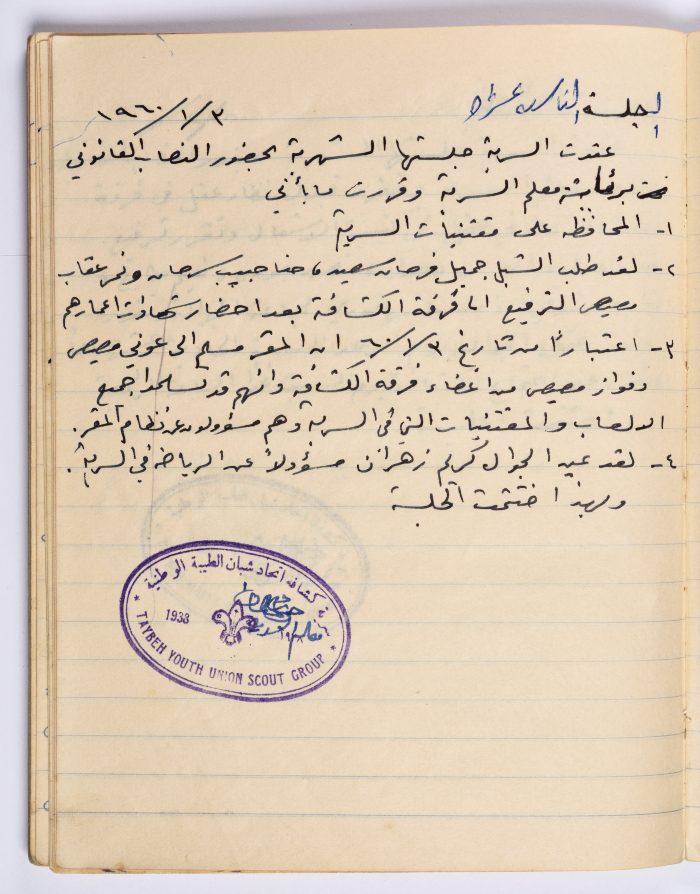 الجلسة الثامنة عشرة ١٩٦٠/١/٣
عقدت السرية جلستها الشهرية بحضور النصاب القانوني
برئاسة معلم السرية وقررت ما يأتي
١- المحافظة على مقتنيات السرية
٢- لقد طلب الشبل جميل فرحان سعيد، حنا حبيب سرحان ونمر عقاب
مصيص الترفيع الى فرقة الكشافة بعد احضار شهادات اعمارهم
٣- اعتباراً من تاريخ ٦٠/١/٣ ان المقر مسلم الى عوني مصيص
وفواز مصيص من اعضاء فرقة الكشافة وانهم قد تسلموا جميع
الالعاب والمقتنيات التي في السرية وهم مسؤولون عن نظام المقر.
٤- لقد عين الجوال كريم زهران مسؤولاً عن الرياضة في السرية.
وبهذا اختتمت الجلسة
سرية كشافة اتحاد شبان الطيبة الوطنية
1938
TAYBEH YOUTH UNION SCOUT GROUP